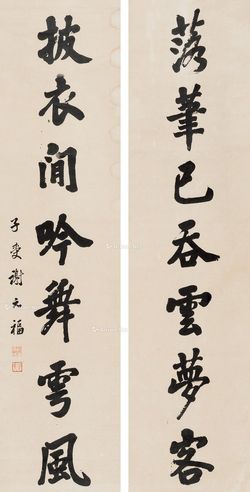 落筆已吞雲夢客
披衣閒吟舞雩風
子受謝元福